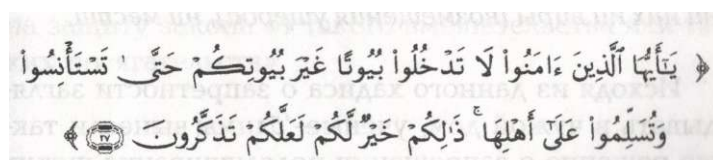 ﴿ يَـٰٓأَيُّهَا ٱلَّذِينَ ءَامَنُوا۟ لَا تَدْخُلُوا۟ بُيُوتًا غَيْرَ بُيُوتِكُمْ حَتَّىٰ تَسْتَأْنِسُوا۟
وَتُسَلِّمُوا۟ عَلَىٰٓ أَهْلِهَا ۚ ذَٰلِكُمْ خَيْرٌ لَّكُمْ لَعَلَّكُمْ تَذَكَّرُونَ ٢٧ ﴾